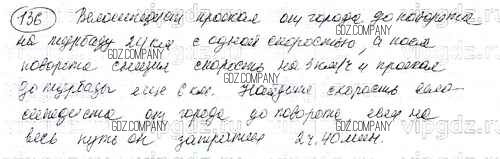 136 Велосипедист проехал от города до поворота
на турбазу 24 км с одной скоростью, а после
поворота снизил скорость на 8 км/ч и проехал
до турбазы еще 8 км. Найдите скорость вело-
сипедиста от города до поворота если на
весь путь он затратил 2 ч. 40 мин.
GDZ.COMPANY
GDZ.COMPANY
GDZ.COMPANY
GDZ.COMPANY